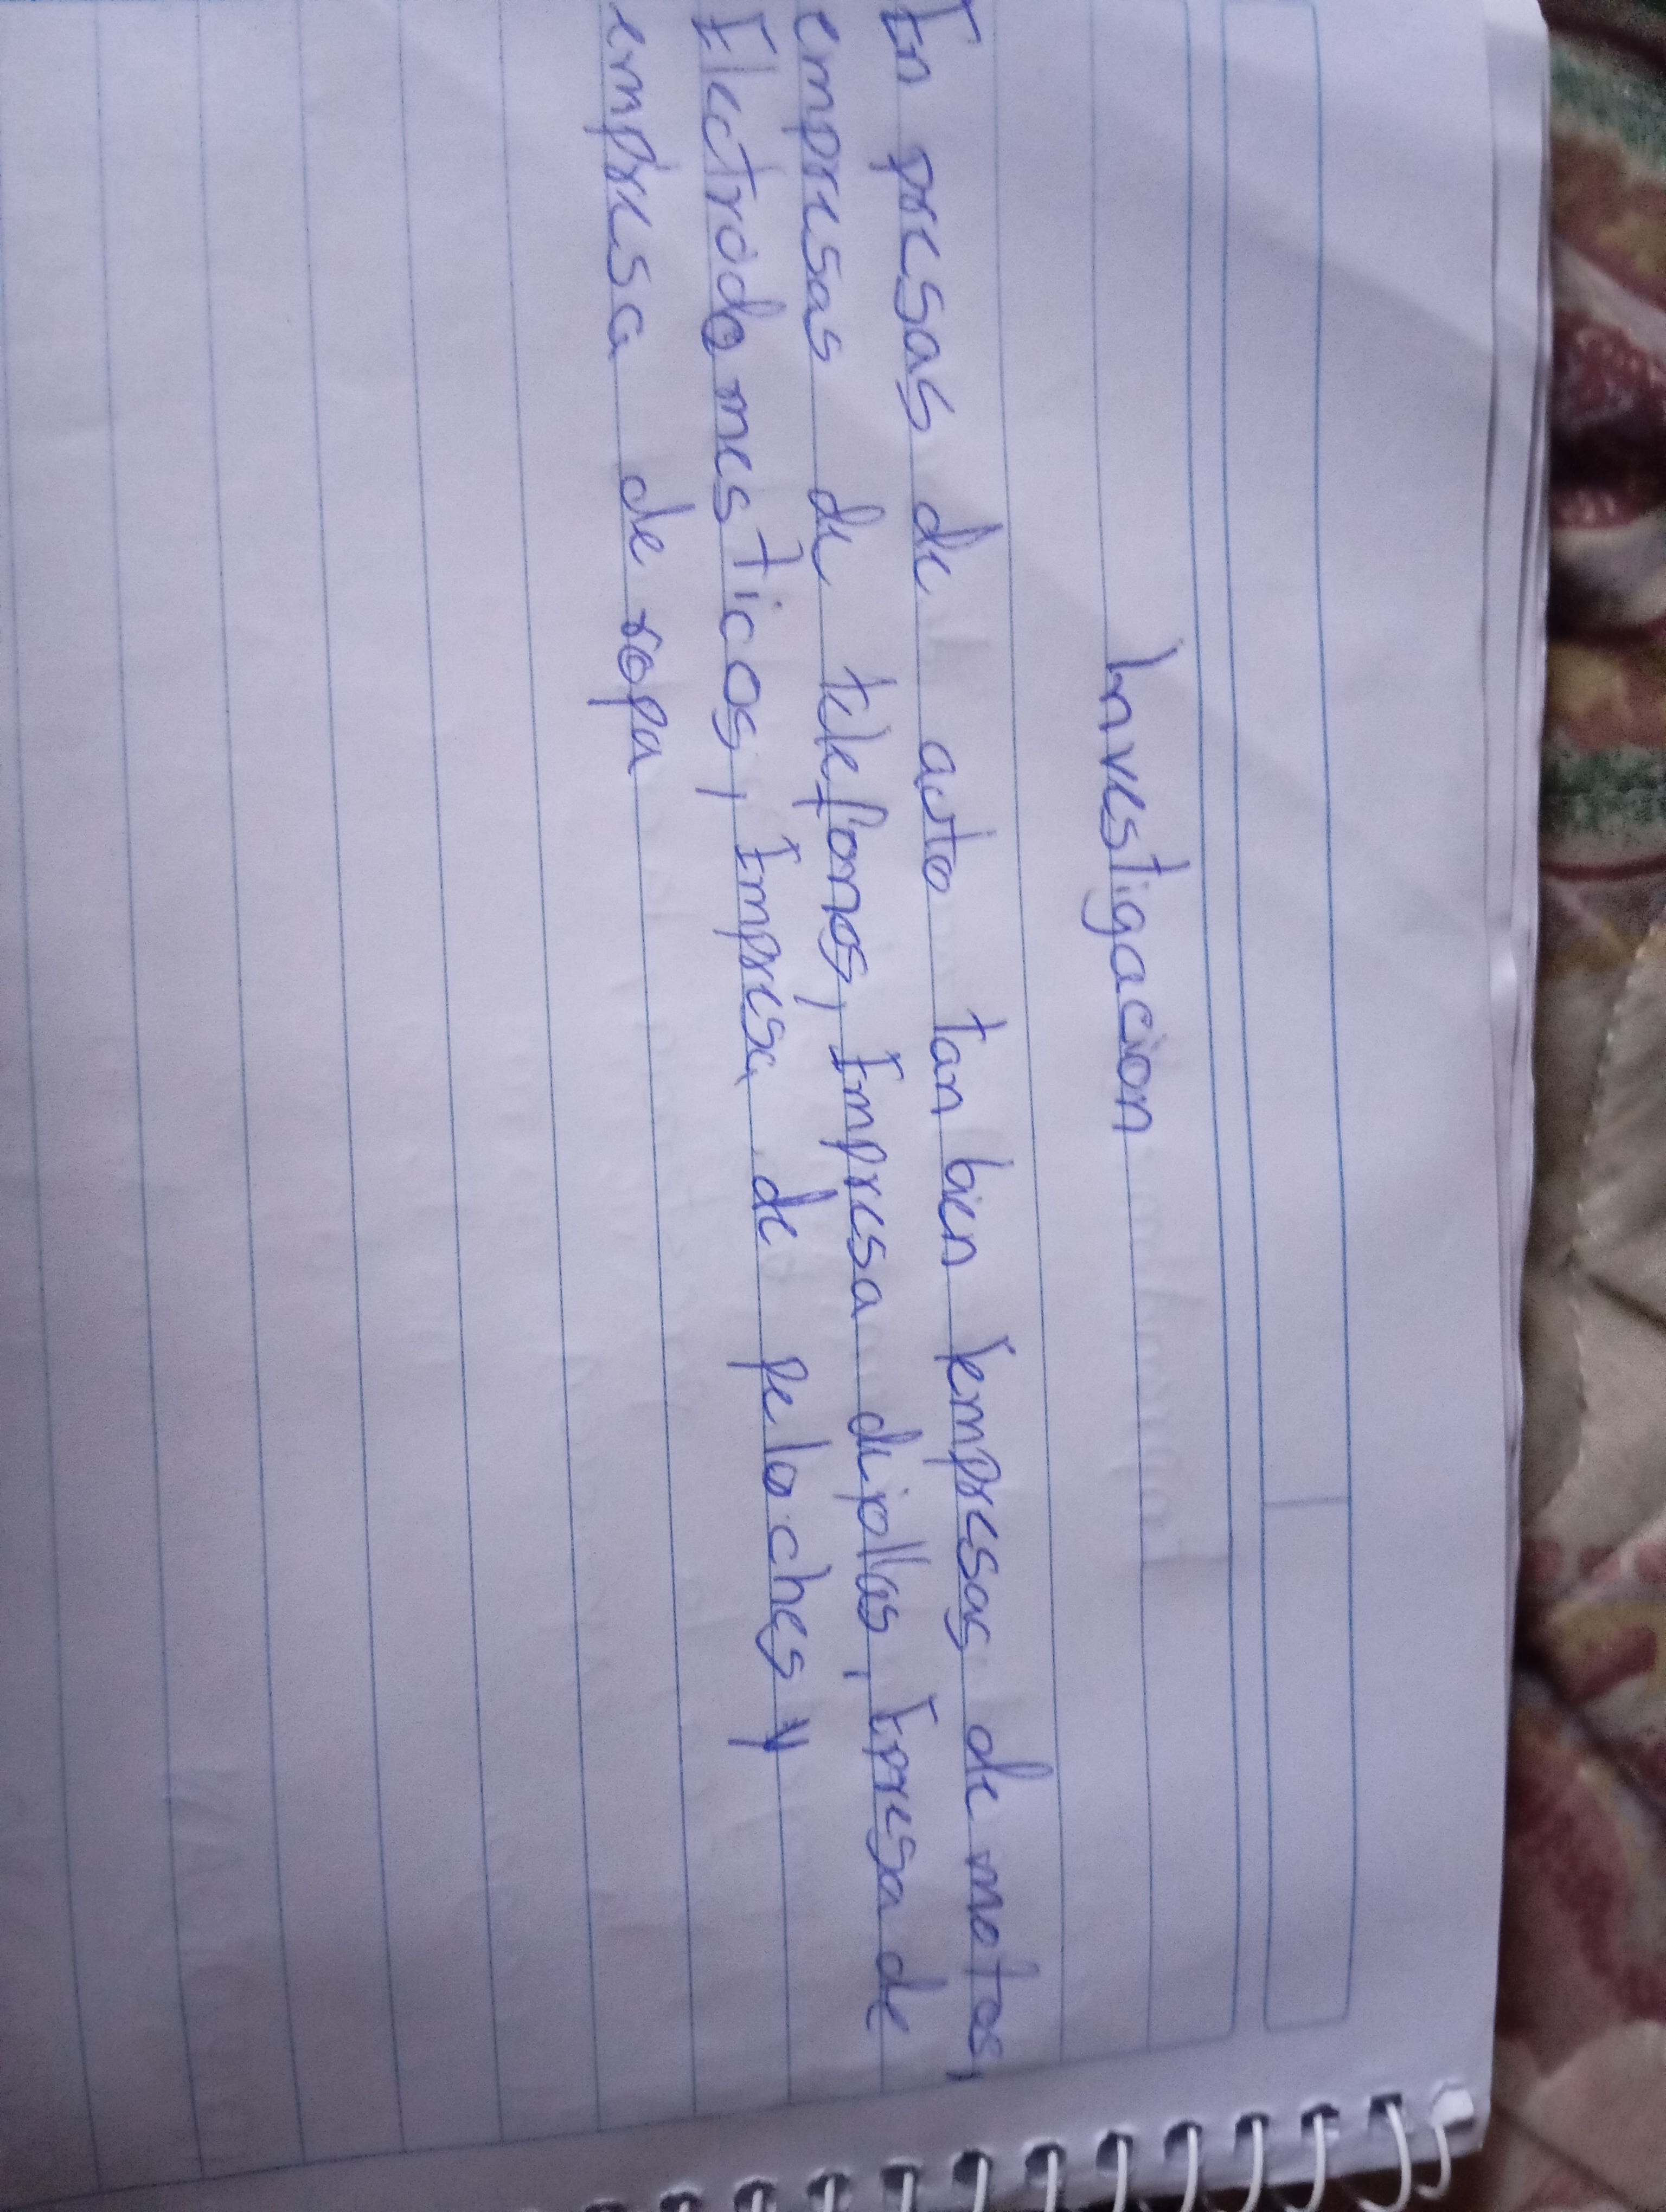 Investigacion
En presas de auto tan bien Empresas de motos,
empresas de telefonos, Empresa de jollas, Epresa de
Electrodomesticos, Empresa de peloches y
empresa de ropa